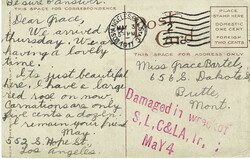 Be sure & answer.
THIS SPACE FOR CORRESPONDENCE
Dear Grace,
We arrived
thursday. We are
having a lovely
time.
Its just beautiful
here, I have a large
red rose on now,
Carnations are only
five cents a dozen.
I remain your friend
May.
553 S. Hope St.
Los Angeles
LOS ANGELES
MAY
1917
Post
Card
THIS SPACE FOR ADDRESS ONLY
PLACE
STAMP HERE
DOMESTIC
ONE CENT
FOREIGN
TWO CENTS
Miss Grace Bartel
656 S. Dakota St
Butte,
Mont.
Damaged in wreck of
S.L, C & LA, Tr.,
MaY 4